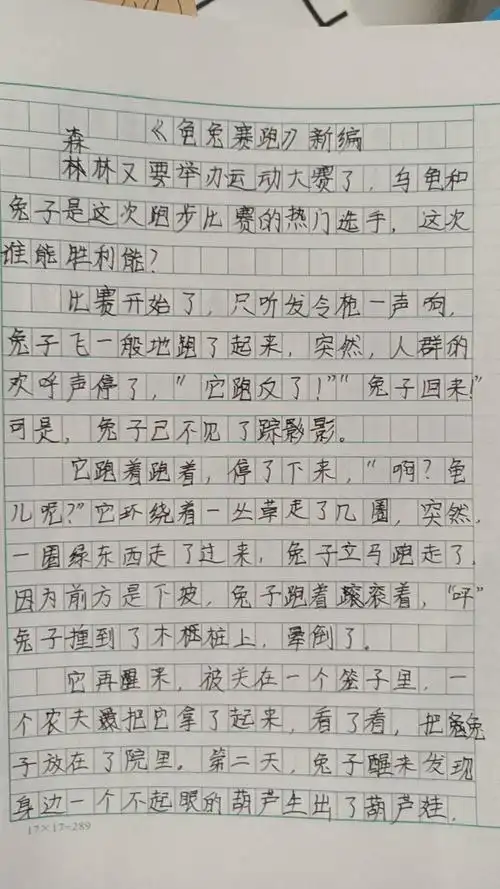 《龟兔赛跑》新编
森林又要举办运动大赛了，乌龟和
兔子是这次跑步比赛的热门选手，这次
谁能胜利能？
比赛开始了，只听发令枪一声响，
兔子飞一般地跑了起来，突然，人群的
欢呼声停了，“它跑反了！”“兔子回来！”
可是，兔子已不见了踪影。
它跑着跑着，停了下来，“啊？龟
儿呢？”它环绕着一丛草走了几圈，突然，
一团绿东西走了过来，兔子立马跑走了，
因为前方是下坡，兔子跑着滚着，“呯”
兔子撞到了木桩上，晕倒了。
它再醒来，被关在一个笼子里，一
个农夫把它拿了起来，看了看，把兔
子放在了院里。第二天，兔子醒来发现
身边一个不起眼的葫芦生出了葫芦娃，
17×17=289